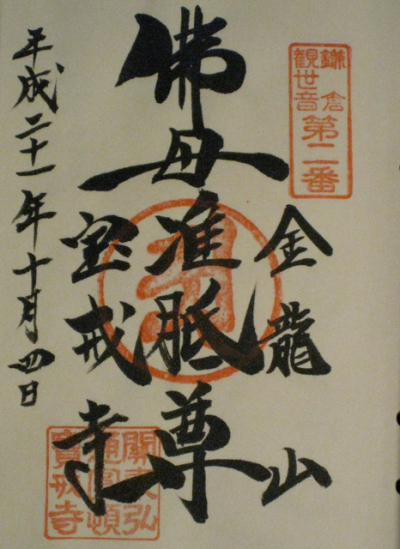 鎌倉
観世音
第二番
金龍山
佛母准胝尊
宝戒寺
平成二十一年十月四日
關東弘
通圓頓
寶戒寺